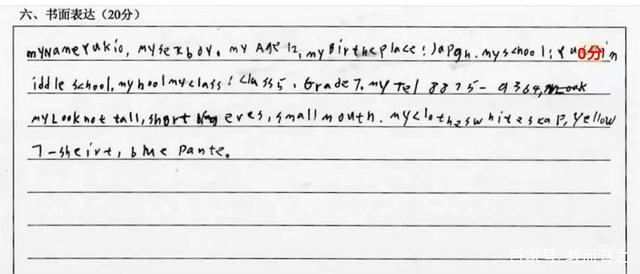 六、书面表达（20分）
myNameYukio, mysexboy. my Age 12, my Birtheplace: Japgn. myschool: Yu 0分 in
iddle school, my class: class5, Grade7. my Tel 8875-9364,
myLooknot tall, short eyes, small mouth. myclotheswhitescap, Yellow
T-sheirt, blue pante.